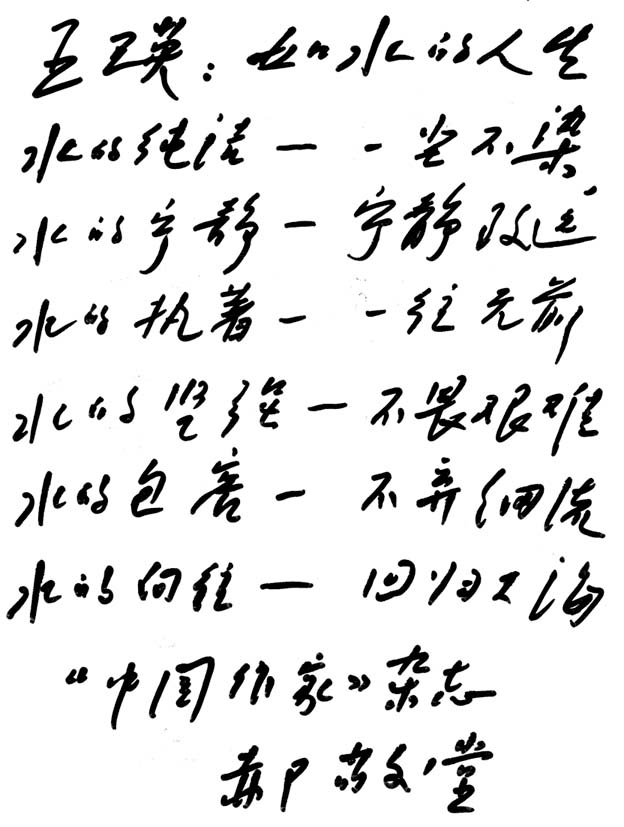 王卫英：如水的人生
水的纯洁一 一尘不染
水的宁静一 宁静致远
水的执著一 一往无前
水的坚强一 不畏艰难
水的包容一 不弃细流
水的向往一 回归大海
“中国作家》杂志
郝敬堂